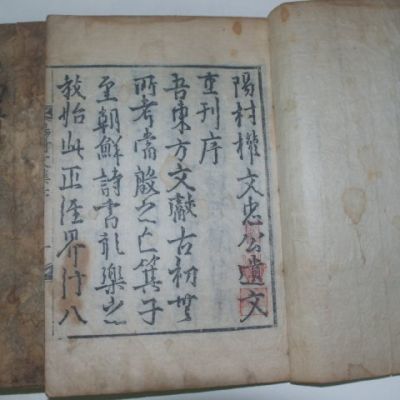 陽村權文忠公遺文
重刊序
吾東方文獻古初無
所考當殷之亡箕子
至朝鮮詩書禮樂之
教始此正經界行八